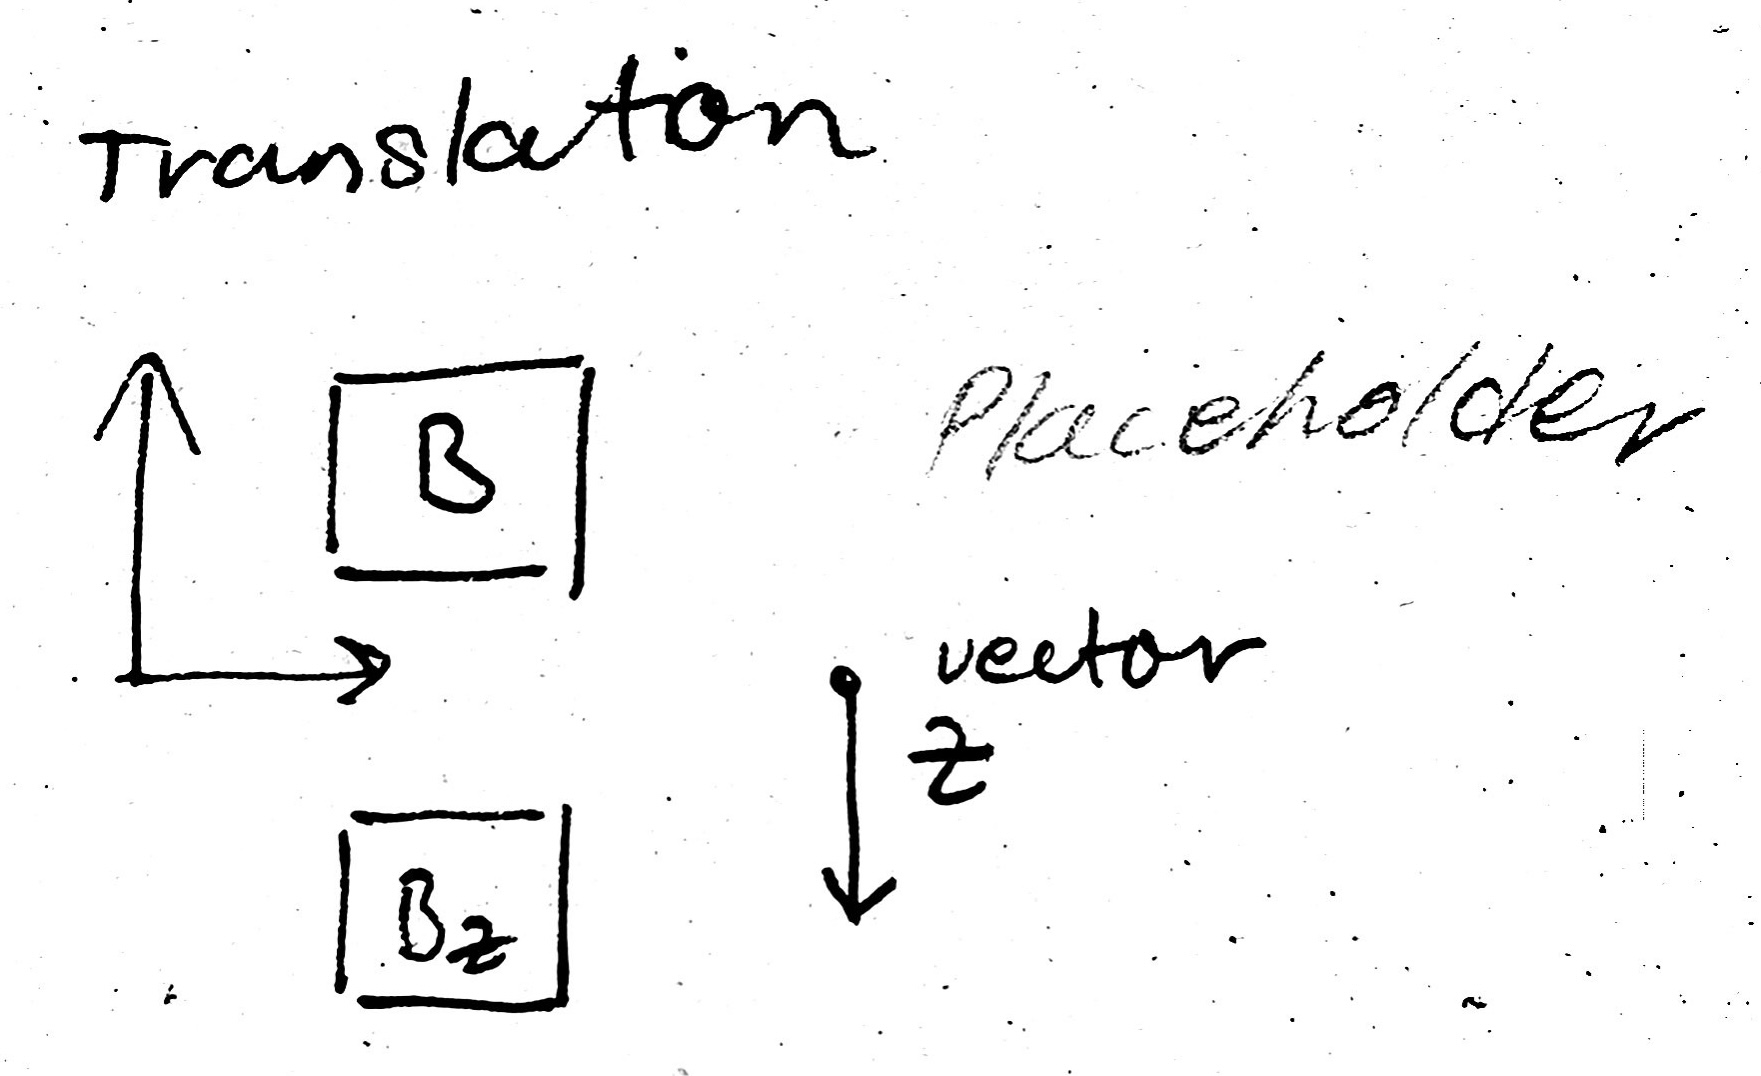 Translation
B
Placeholder
vector
z
Bz